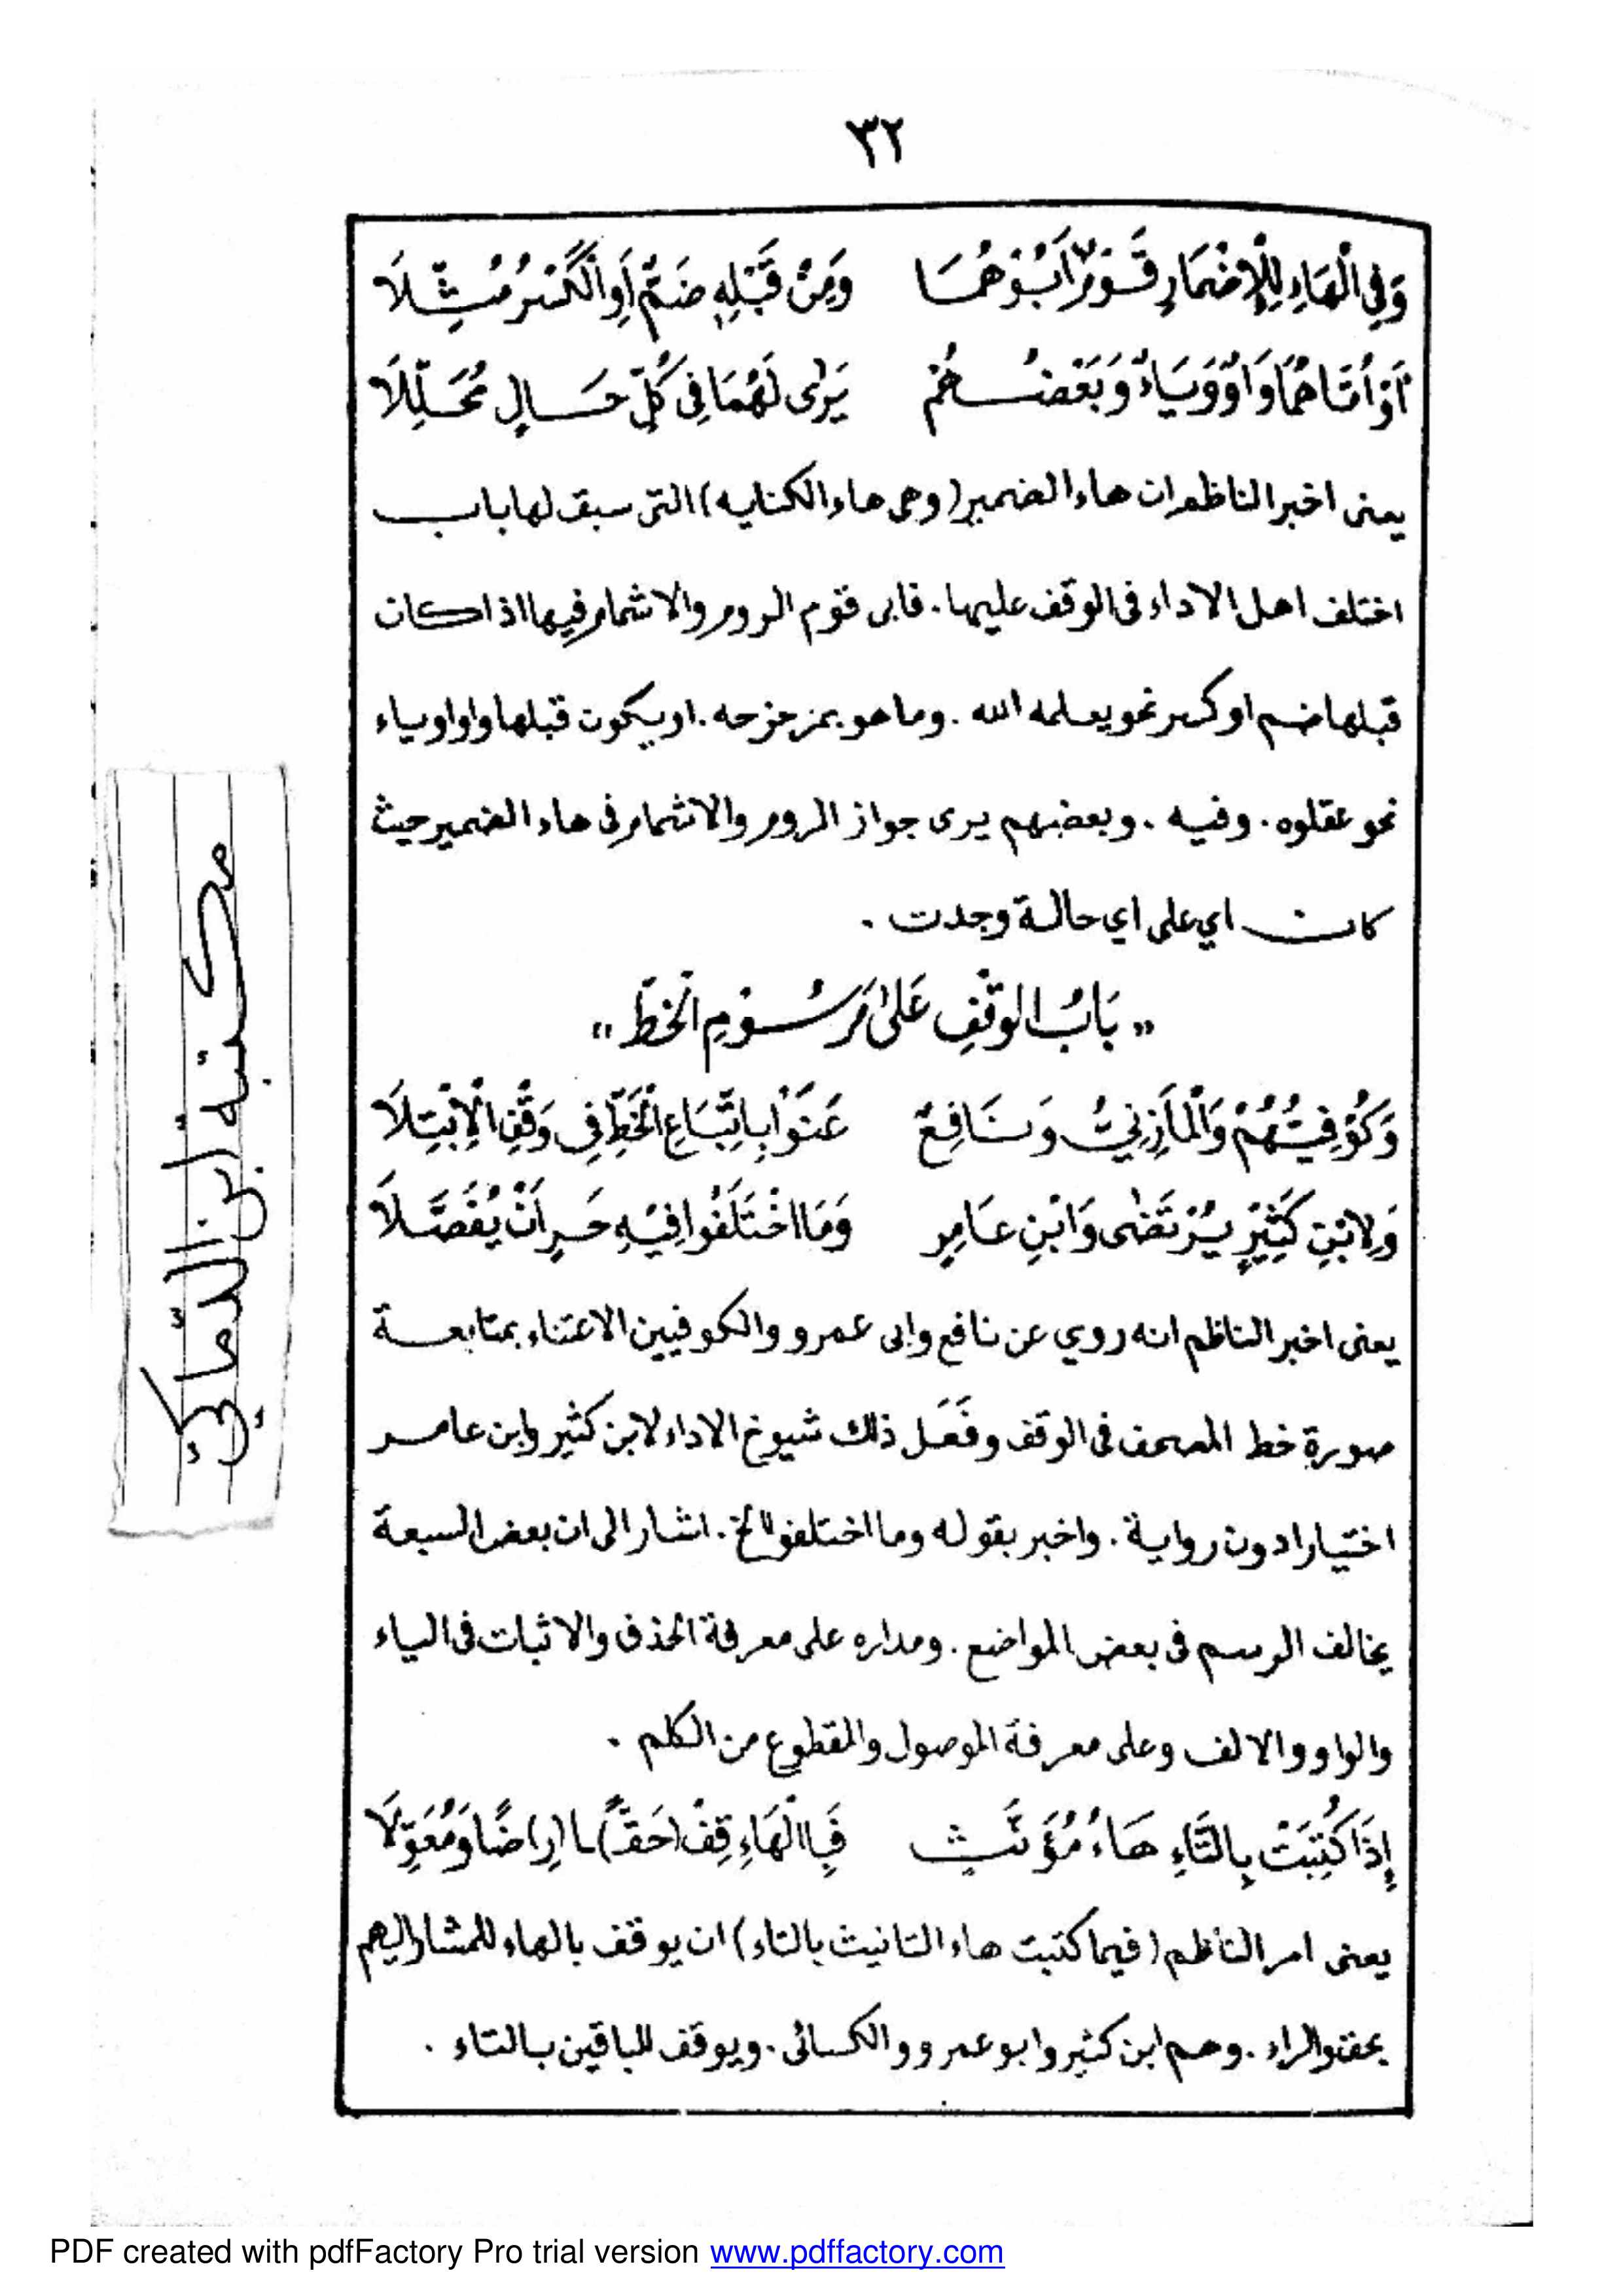 ٣٢
وَفِي الْهَاءِ لِلْإِضْمَارِ قَوْمٌ أَبَوْهُمَا وَمِنْ قَبْلِهِ ضَمٌّ أَوِ الْكَسْرُ مُثِّلَا
أَوْ أُمَّاهُمَا وَاوٌ وَيَاءٌ وَبَعْضُهُمْ يَرٰى لَهُمَا فِى كُلِّ حَالٍ مُحَلِّلَا
يعنى اخبر الناظم ان هاء الضمير (وهى هاء الكنايه) التى سبق لها باب
اختلف اهل الاداء فى الوقف عليها. فابى قوم الروم والاشمام فيها اذا كان
قبلها ضم او كسر نحو يعلمه الله . وما هو بمزحزحه . او يكون قبلها واو او ياء
نحو عقلوه . وفيه . وبعضهم يرى جواز الروم والاشمام فى هاء الضمير حيث
كانت اي على اي حالة وجدت .
« بَابُ الوَقْفِ عَلىٰ مَرْسُوْمِ الْخَطّ »
وَكُوْفِيُّهُمْ وَالْمَازِنِيُّ وَنَافِعٌ عَنَوْا بِاتِّبَاعِ الْخَطِّ فِى وَقْفِ الْاِبْتِلَا
وَلِابْنِ كَثِيْرٍ يُرْتَضٰى وَابْنِ عَامِرٍ وَمَا اخْتَلَفُوا فِيْهِ حَرٍ أَنْ يُفَصَّلَا
يعنى اخبر الناظم انه روي عن نافع وابى عمرو والكوفيين الاعتناء بمتابعة
صورة خط المصحف فى الوقف وفَعَل ذلك شيوخ الاداء لابن كثير وابن عامر
اختيارا دون رواية . واخبر بقوله وما اختلفوا الخ . اشار الى ان بعض السبعة
يخالف الرسم فى بعض المواضع . ومداره على معرفة الحذف والاثبات فى الياء
والواو والالف وعلى معرفة الموصول والمقطوع من الكلم .
إِذَا كُتِبَتْ بِالتَّاءِ هَاءُ مُؤَنَّثٍ فَبِالْهَاءِ قِفْ (حَقًّا) (رِ)ضًا وَمُعَوِّلَا
يعنى امر الناظم (فيما كتبت هاء التانيث بالتاء) ان يوقف بالهاء للمشار اليهم
بحق والراء . وهم ابن كثير وابو عمرو والكسائى . ويوقف للباقين بالتاء .
مكتبة ابن
PDF created with pdfFactory Pro trial version www.pdffactory.com